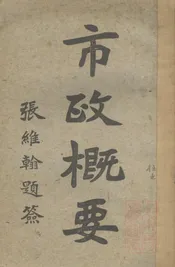 市政概要
張維翰題簽